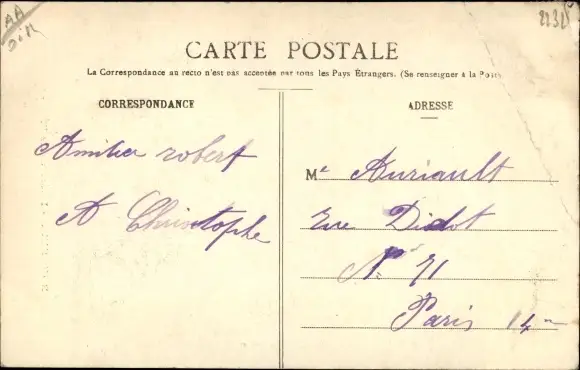 AA
2232
CARTE POSTALE
La Correspondance au recto n'est pas acceptée par tous les Pays Étrangers. (Se renseigner à la Poste)
CORRESPONDANCE
ADRESSE
robert
A Christophe
Mr Auriault
rue Didot
No 71
Paris 14me